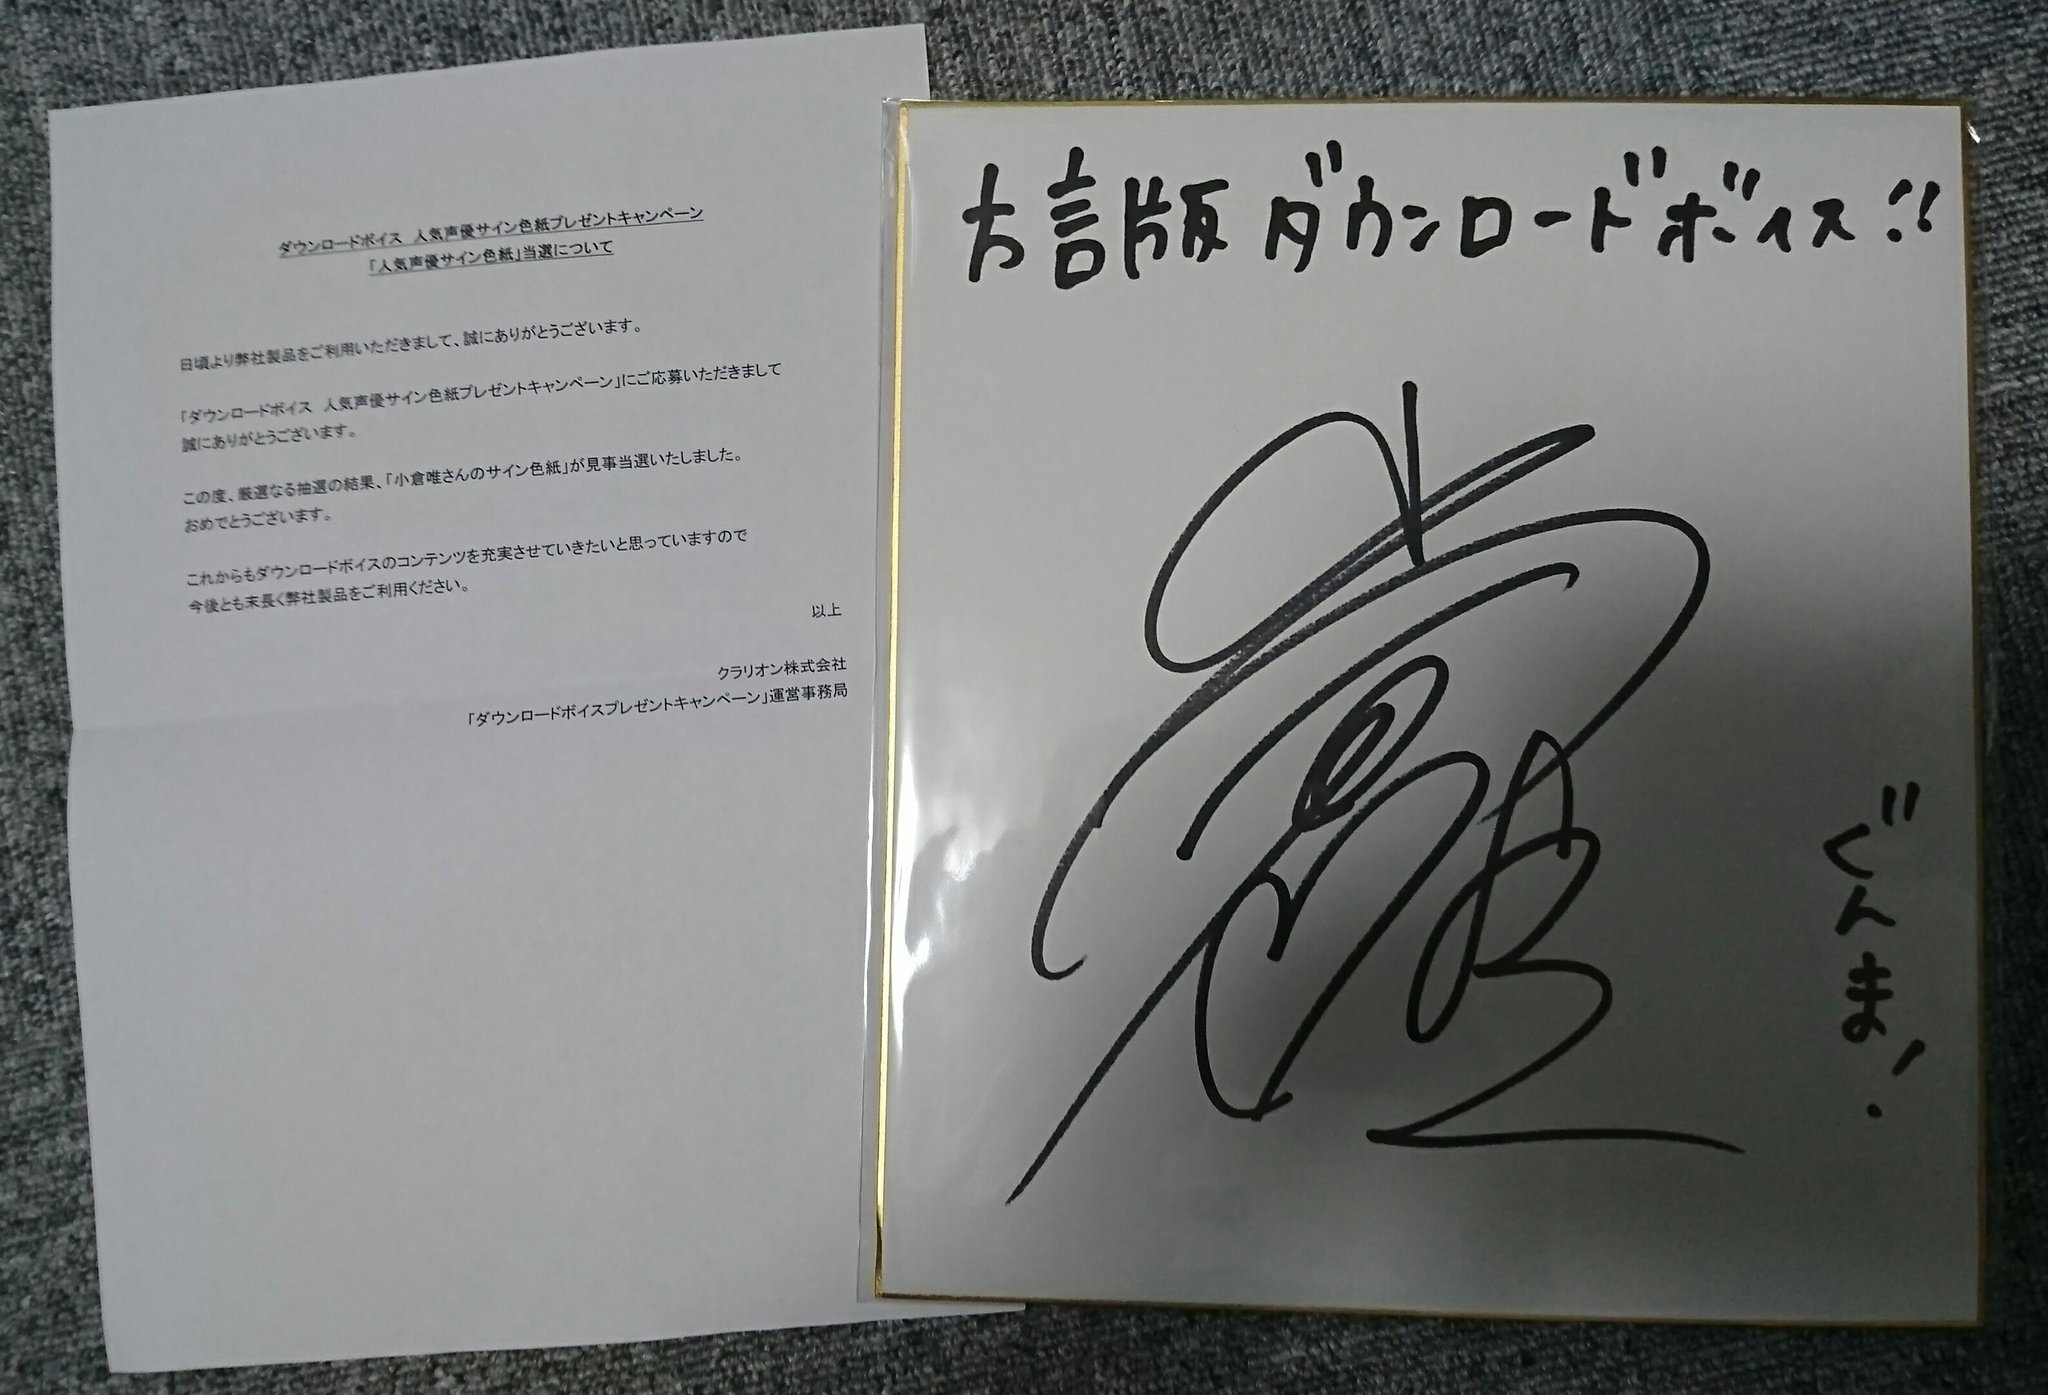 ダウンロードボイス　人気声優サイン色紙プレゼントキャンペーン
「人気声優サイン色紙」当選について
日頃より弊社製品をご利用いただきまして、誠にありがとうございます。
「ダウンロードボイス　人気声優サイン色紙プレゼントキャンペーン」にご応募いただきまして
誠にありがとうございます。
この度、厳選なる抽選の結果、「小倉唯さんのサイン色紙」が見事当選いたしました。
おめでとうございます。
これからもダウンロードボイスのコンテンツを充実させていきたいと思っていますので
今後とも末長く弊社製品をご利用ください。
以上
クラリオン株式会社
「ダウンロードボイスプレゼントキャンペーン」運営事務局
方言版ダウンロードボイス!!
ぐんま!